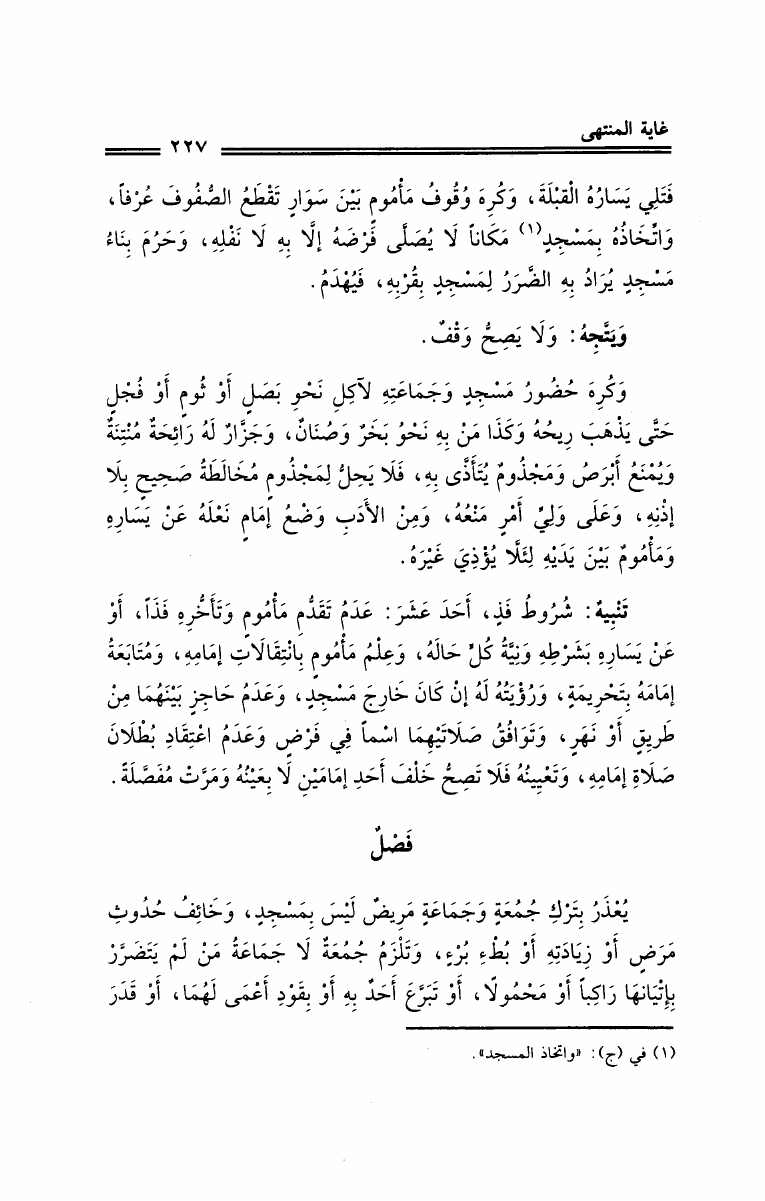 غاية المنتهى
٢٢٧
فَتَلِي يَسَارُهُ الْقِبْلَةَ، وَكُرِهَ وُقُوفُ مَأْمُومٍ بَيْنَ سَوَارٍ تَقْطَعُ الصُّفُوفَ عُرْفاً،
وَاتِّخَاذُهُ بِمَسْجِدٍ(١) مَكَاناً لَا يُصَلَّى فَرْضَهُ إلَّا بِهِ لَا نَفْلِهِ، وَحَرُمَ بِنَاءُ
مَسْجِدٍ يُرَادُ بِهِ الضَّرَرُ لِمَسْجِدٍ بِقُرْبِهِ، فَيُهْدَمُ.
وَيَتَّجِهُ: وَلَا يَصِحُّ وَقْفٌ.
وَكُرِهَ حُضُورُ مَسْجِدٍ وَجَمَاعَتِهِ لآكِلِ نَحْوِ بَصَلٍ أَوْ ثُومٍ أَوْ فُجْلٍ
حَتَّى يَذْهَبَ رِيحُهُ وَكَذَا مَنْ بِهِ نَحْوُ بَخَرٌ وَصُنَانٌ، وَجَزَّارٌ لَهُ رَائِحَةٌ مُنْتِنَةٌ
وَيُمْنَعُ أَبْرَصُ وَمَجْذُومٌ يُتَأَذَّى بِهِ، فَلَا يَحِلُّ لِمَجْذُومٍ مُخَالَطَةُ صَحِيحٍ بِلَا
إذْنِهِ، وَعَلَى وَلِيِّ أَمْرٍ مَنْعُهُ، وَمِنْ الأَدَبِ وَضْعُ إمَامٍ نَعْلَهُ عَنْ يَسَارِهِ
وَمَأْمُومٌ بَيْنَ يَدَيْهِ لِئَلَّا يُؤْذِيَ غَيْرَهُ.
تَنْبِيهٌ: شُرُوطُ فَذٍ، أَحَدَ عَشَرَ: عَدَمُ تَقَدُّمِ مَأْمُومٍ وَتَأَخُّرِهِ فَذّاً، أَوْ
عَنْ يَسَارِهِ بَشَرْطِهِ وَنِيَّةُ كُلٍّ حَالَهُ، وَعِلْمُ مَأْمُومٍ بِانْتِقَالَاتِ إمَامِهِ، وَمُتَابَعَةُ
إمَامَهُ بِتَحْرِيمَةٍ، وَرُؤْيَتُهُ لَهُ إنْ كَانَ خَارِجَ مَسْجِدٍ، وَعَدَمُ حَاجِزٍ بَيْنَهُمَا مِنْ
طَرِيقٍ أَوْ نَهَرٍ، وَتَوَافُقُ صَلَاتَيْهِمَا اسْماً فِي فَرْضٍ وَعَدَمُ اعْتِقَادِ بُطْلَانَ
صَلَاةِ إمَامِهِ، وَتَعْيِينُهُ فَلَا تَصِحُّ خَلْفَ أَحَدِ إمَامَيْنِ لَا بِعَيْنُهُ وَمَرَّتْ مُفَصَّلَةً.
فَصْلٌ
يُعْذَرُ بِتَرْكِ جُمُعَةٍ وَجَمَاعَةٍ مَرِيضٌ لَيْسَ بِمَسْجِدٍ، وَخَائِفُ حُدُوثِ
مَرَضٍ أَوْ زِيَادَتِهِ أَوْ بُطْءِ بُرْءٍ، وَتَلْزَمُ جُمُعَةٌ لَا جَمَاعَةُ مَنْ لَمْ يَتَضَرَّرْ
بِإِتْيَانهَا رَاكِباً أَوْ مَحْمُولًا، أَوْ تَبَرَّعَ أَحَدٌ بِهِ أَوْ بِقَوْدِ أَعْمَى لَهُمَا، أَوْ قَدَرَ
(١) في (ج): «واتخاذ المسجد».